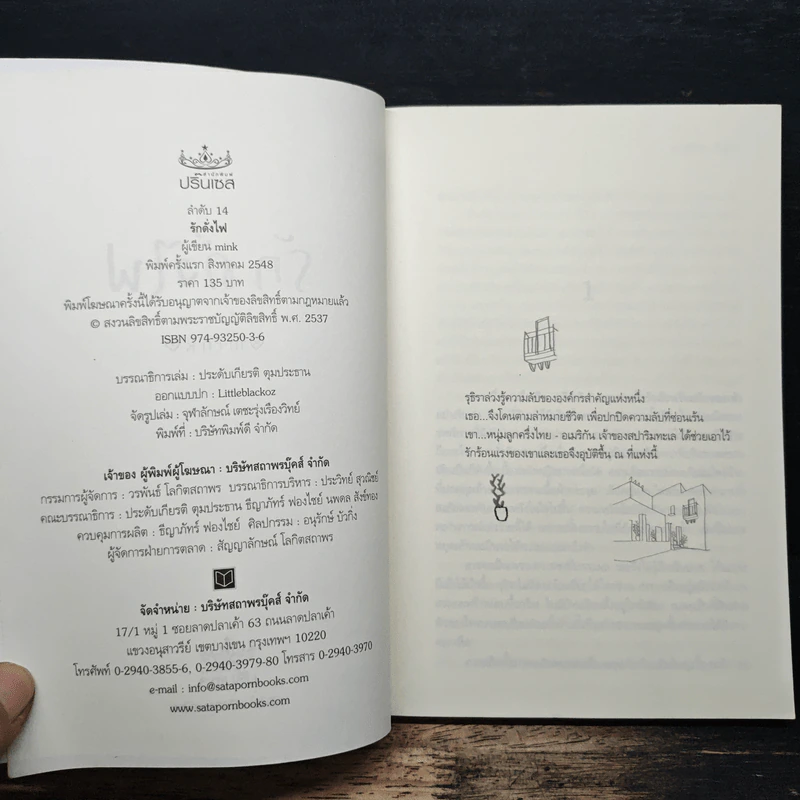 สำนักพิมพ์
ปริ๊นเซส
ลำดับ 14
รักดั่งไฟ
ผู้เขียน mink
พิมพ์ครั้งแรก สิงหาคม 2548
ราคา 135 บาท
พิมพ์โฆษณาครั้งนี้ได้รับอนุญาตจากเจ้าของลิขสิทธิ์ตามกฎหมายแล้ว
© สงวนลิขสิทธิ์ตามพระราชบัญญัติลิขสิทธิ์ พ.ศ. 2537
ISBN 974-93250-3-6
บรรณาธิการเล่ม : ประดับเกียรติ ตุมประธาน
ออกแบบปก : Littleblackoz
จัดรูปเล่ม : จุฬาลักษณ์ เดชะรุ่งเรืองวิทย์
พิมพ์ที่ : บริษัทพิมพ์ดี จำกัด
เจ้าของ ผู้พิมพ์ผู้โฆษณา : บริษัทสถาพรบุ๊คส์ จำกัด
กรรมการผู้จัดการ : วรพันธ์ โลกิตสถาพร บรรณาธิการบริหาร : ประวิทย์ สุวณิชย์
คณะบรรณาธิการ : ประดับเกียรติ ตุมประธาน ธีญาภัทร์ ฟองไชย์ นพดล สังข์ทอง
ควบคุมการผลิต : ธีญาภัทร์ ฟองไชย์ ศิลปกรรม : อนุรักษ์ บัวกิ่ง
ผู้จัดการฝ่ายการตลาด : สัญญาลักษณ์ โลกิตสถาพร
จัดจำหน่าย : บริษัทสถาพรบุ๊คส์ จำกัด
17/1 หมู่ 1 ซอยลาดปลาเค้า 63 ถนนลาดปลาเค้า
แขวงอนุสาวรีย์ เขตบางเขน กรุงเทพฯ 10220
โทรศัพท์ 0-2940-3855-6, 0-2940-3979-80 โทรสาร 0-2940-3970
e-mail : info@satapornbooks.com
www.satapornbooks.com
รุธิราล่วงรู้ความลับขององค์กรสำคัญแห่งหนึ่ง
เธอ...จึงโดนตามล่าหมายชีวิต เพื่อปกปิดความลับที่ซ่อนเร้น
เขา...หนุ่มลูกครึ่งไทย - อเมริกัน เจ้าของสปาริมทะเล ได้ช่วยเอาไว้
รักร้อนแรงของเขาและเธอจึงอุบัติขึ้น ณ ที่แห่งนี้